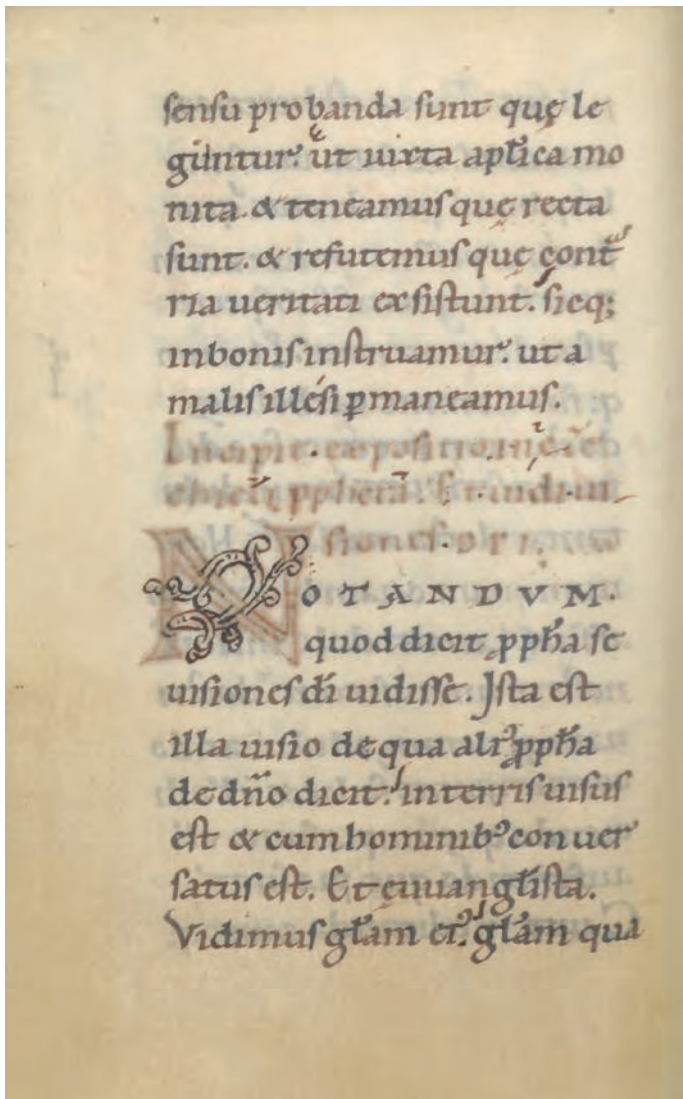 sensu probanda sunt quę le
guntur. ut iuxta apl̄ica mo
nita. & teneamus quę recta
sunt. & refutemus quę cont
ria ueritati exsistunt. sicq;
inbonis instruamur. ut a
malis illęsi ꝑmaneamus.
Incipit expositio in
ꝓphetā. Et uidi ui
siones DEI
NOTANDVM.
quod dicit ꝓph̄a se
uisiones dī uidisse. Ista est
illa uisio de qua alt᷒ ꝓph̄a
de dn̄o dicit. interris uisus
est & cum hominib᷒ conuer
satus est. Et ęuuangl̄ista.
Vidimus gl̄am ei᷒. gl̄am qua